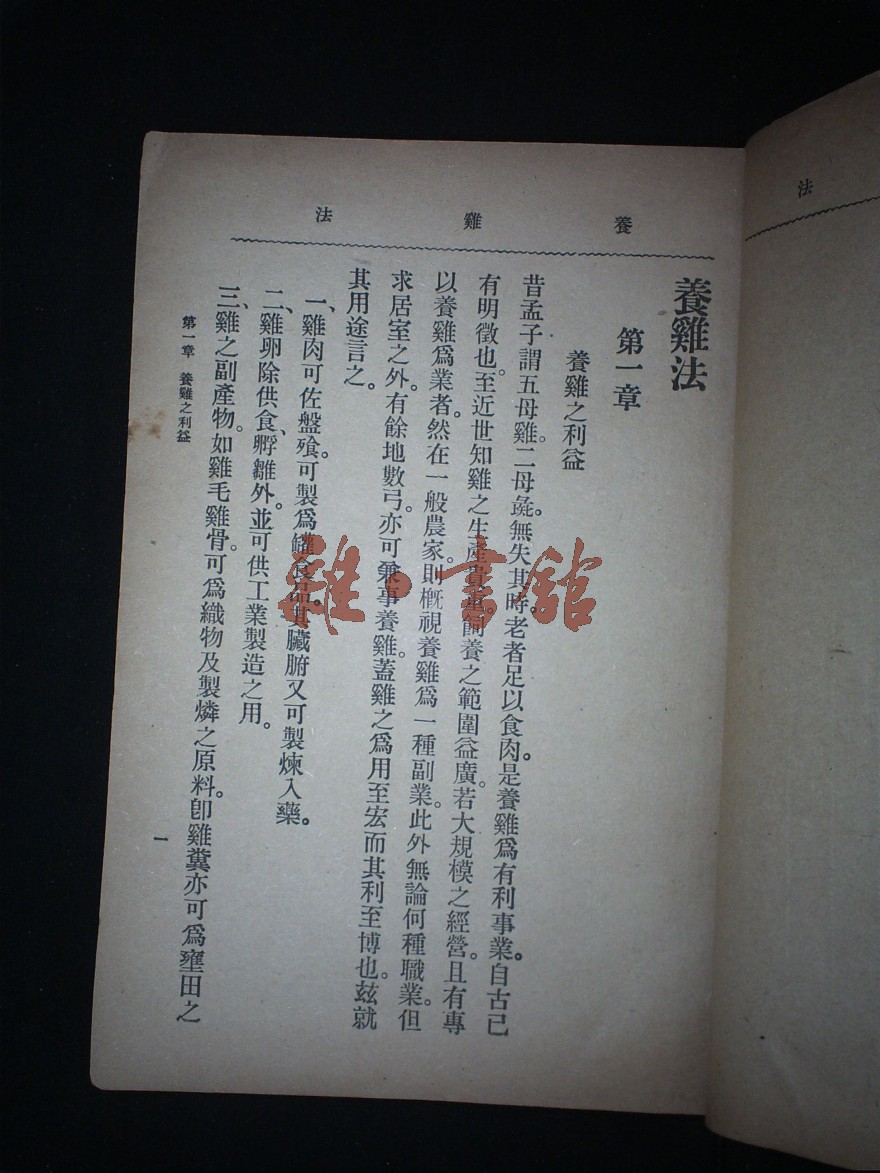 養雞法
養雞法
第一章
養雞之利益
昔孟子謂五母雞。二母彘。無失其時。老者足以食肉。是養雞爲有利事業。自古已
有明徵也。至近世知雞之生產貴重。飼養之範圍益廣。若大規模之經營。且有專
以養雞爲業者。然在一般農家。則概視養雞爲一種副業。此外無論何種職業。但
求居室之外。有餘地數弓。亦可兼事養雞。蓋雞之爲用至宏。而其利至博也。玆就
其用途言之。
一、雞肉可佐盤飱。可製爲罐食品。其臟腑又可製煉入藥。
二、雞卵除供食、孵雛外。並可供工業製造之用。
三、雞之副產物。如雞毛雞骨。可爲織物及製燐之原料。卽雞糞亦可爲壅田之
第一章 養雞之利益
一
法
雜·書館